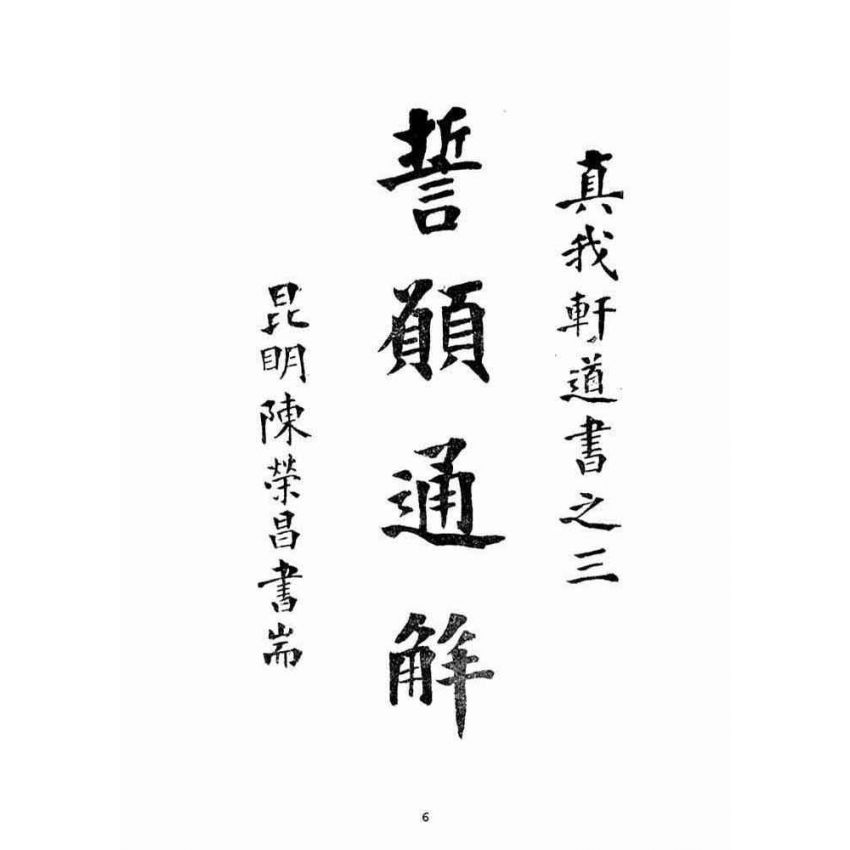 真我軒道書之三
誓願通解
昆明陳榮昌書耑
6